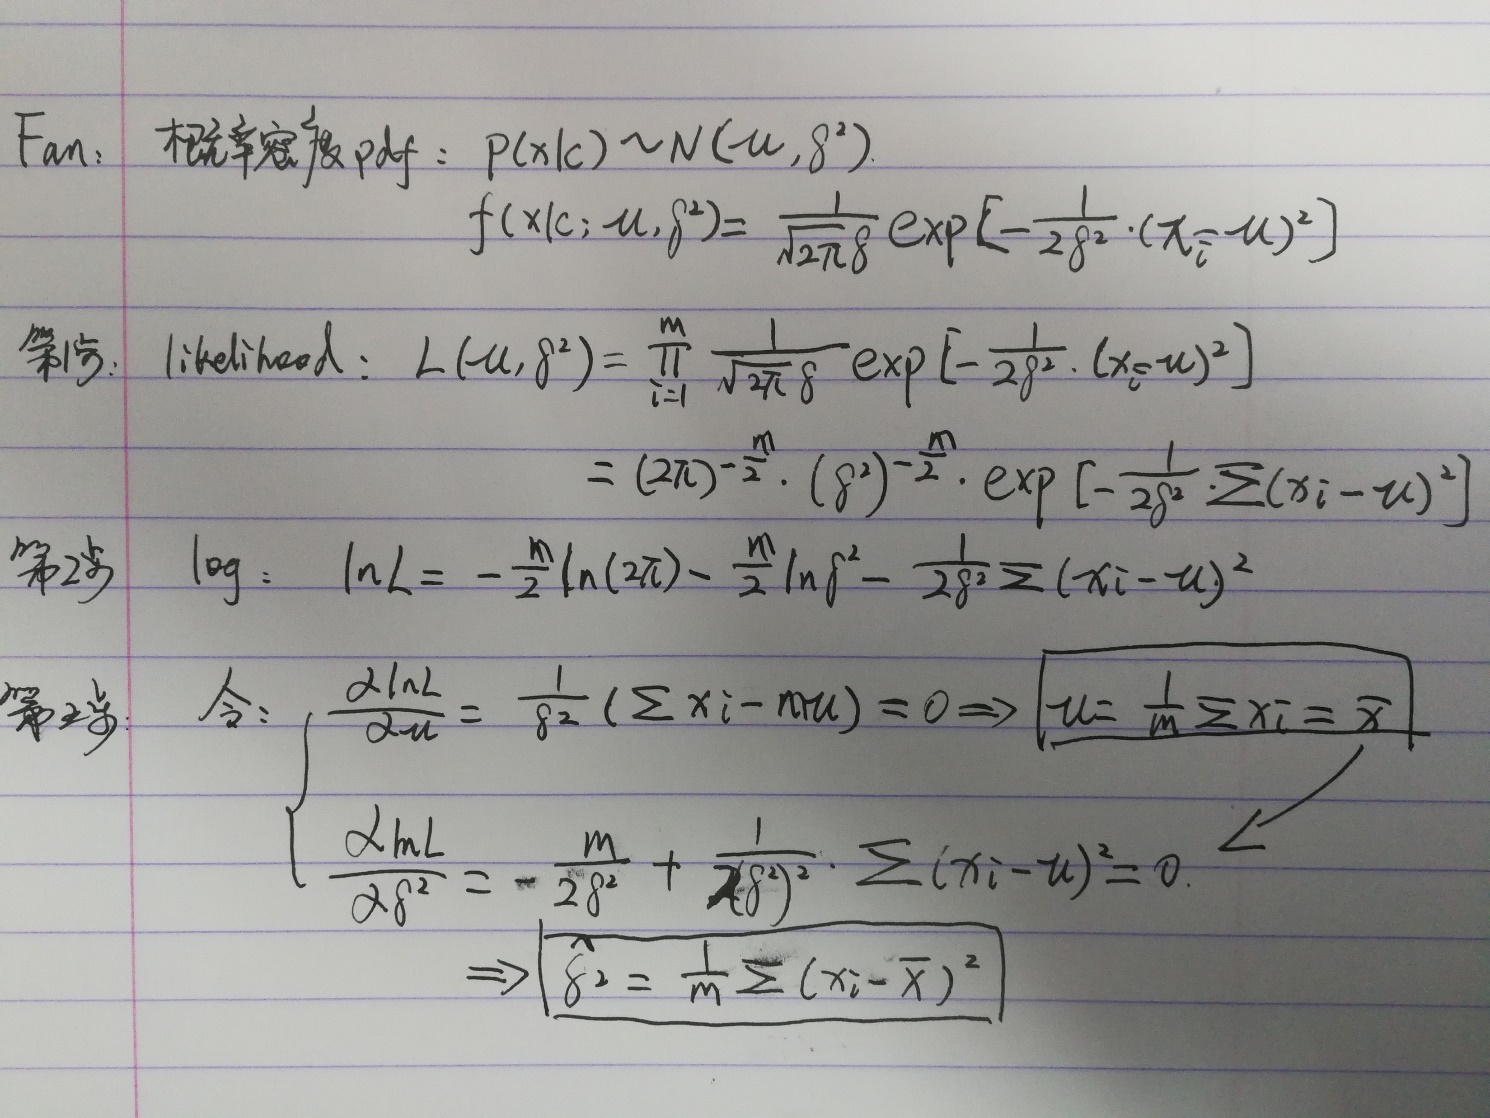 Fan: 概率密度pdf: P(x|c) ~ N(u, δ²).
f(x|c; u, δ²) = 1/(√2π δ) exp[-1/(2δ²)·(xᵢ-u)²]
第1步: likelihood: L(u, δ²) = ∏_{i=1}^{m} 1/(√2π δ) exp[-1/(2δ²)·(xᵢ-u)²]
= (2π)^{-m/2}·(δ²)^{-m/2}·exp[-1/(2δ²)·Σ(xi-u)²]
第2步 log: lnL = -m/2 ln(2π) - m/2 lnδ² - 1/(2δ²) Σ(xi-u)²
第3步: 令: ∂lnL/∂u = 1/δ² (Σxi-mu) = 0 ⇒ u = 1/m Σxi = x̄
∂lnL/∂δ² = -m/(2δ²) + 1/(2(δ²)²)·Σ(xi-u)² = 0.
⇒ δ̂² = 1/m Σ(xi-x̄)²